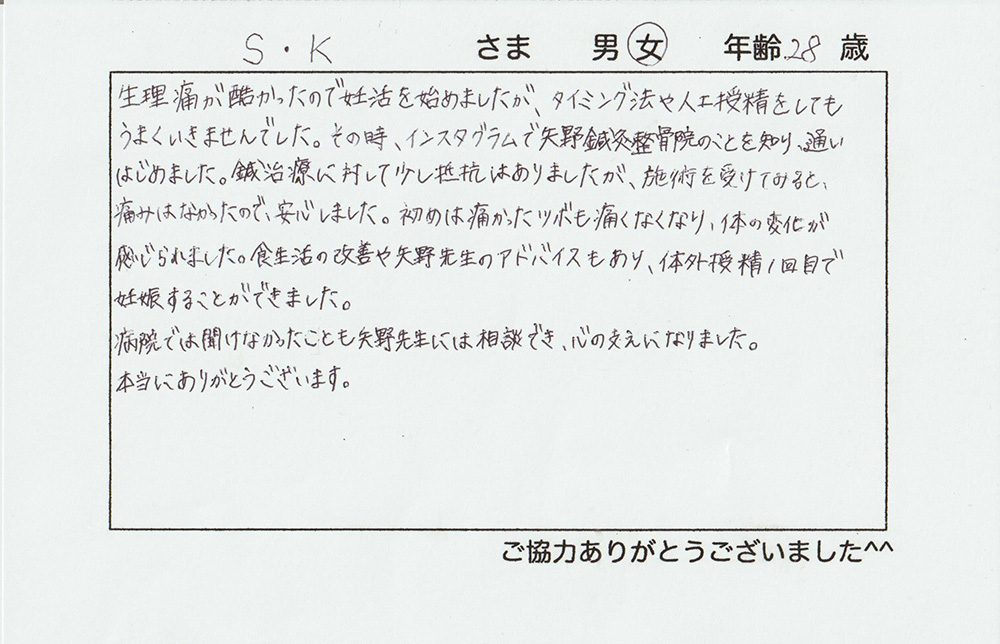 S・K さま 男 女 年齢 28 歳
生理痛が酷かったので妊活を始めましたが、タイミング法や人工授精をしても
うまくいきませんでした。その時、インスタグラムで矢野鍼灸整骨院のことを知り、通い
はじめました。鍼治療に対して少し抵抗はありましたが、施術を受けてみると、
痛みはなかったので、安心しました。初めは痛かったツボも痛くなくなり、体の変化が
感じられました。食生活の改善や矢野先生のアドバイスもあり、体外授精1回目で
妊娠することができました。
病院では聞けなかったことも矢野先生には相談でき、心の支えになりました。
本当にありがとうございます。
ご協力ありがとうございました^^